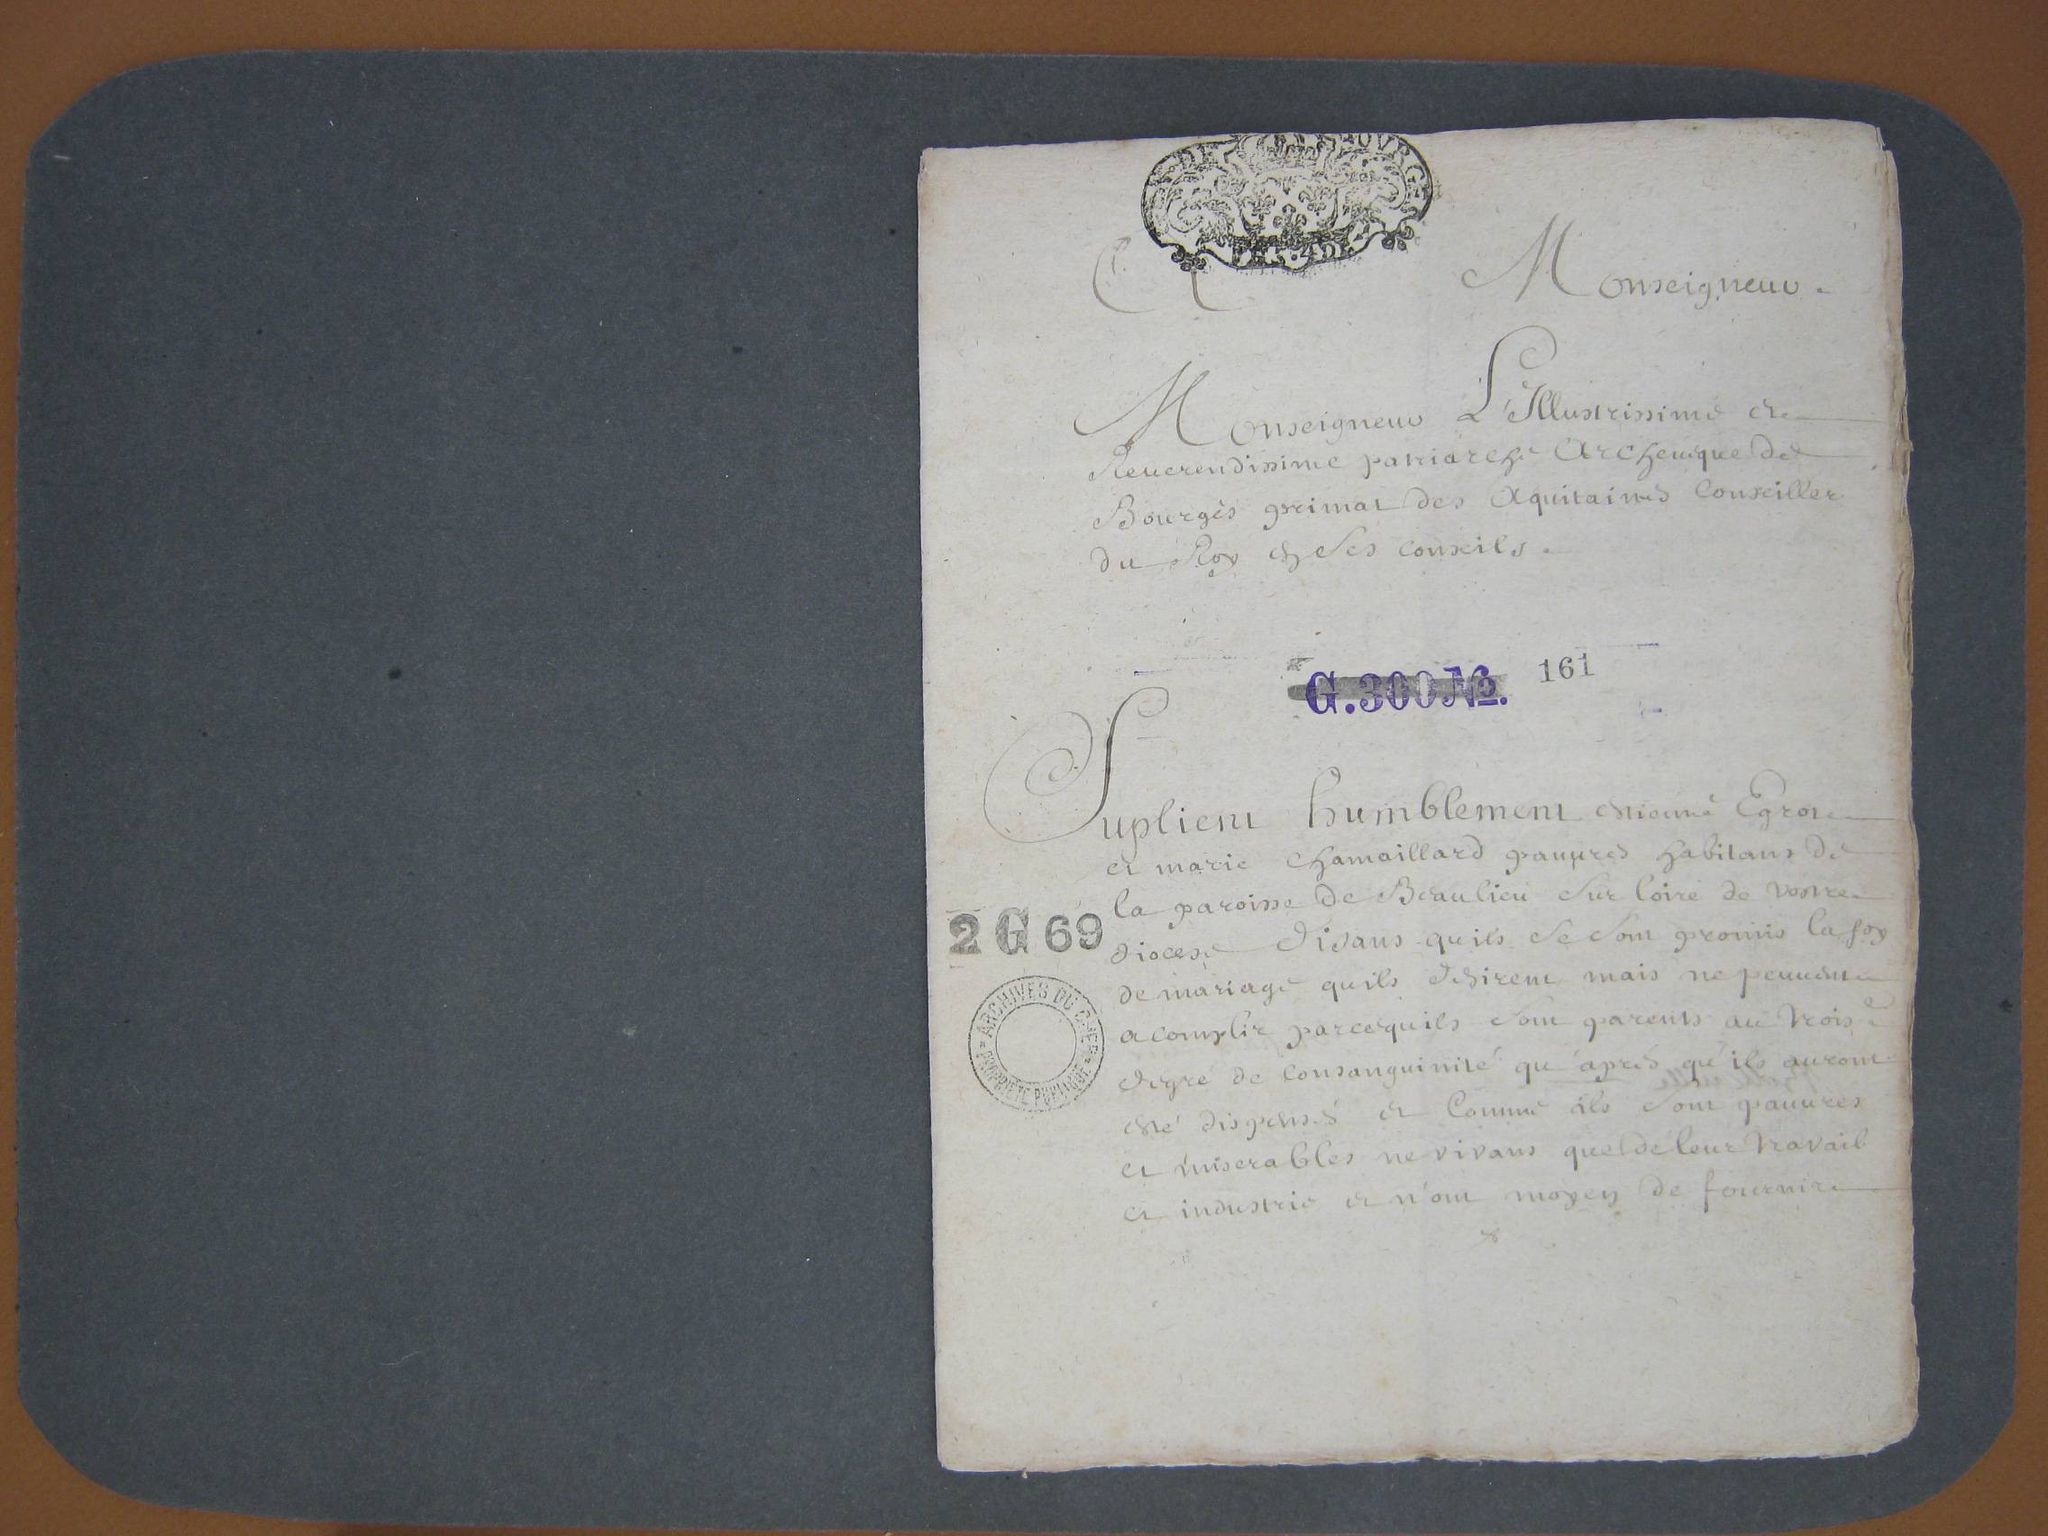 A Monseigneur
Monseigneur L'Illustrissime et
Reuerendissime patriarche Archeuêque de
Bourges primat des Aquitaines Conseiller
du Roy en ses conseils.
G.300 No. 161
Suplient humblement estienne Egrot
et marie chamaillard pauures habitans de
la paroisse de Beaulieu sur loire de vostre
2 G 69
diocese disans quils se sont promis la foy
de mariage quils desirent mais ne peuuent
acomplir parcequils sont parents au trois.e
degré de consanguinité qu'aprés qu'ils auront
esté dispensés et comme ils sont pauures
et miserables ne vivans que de leur travail
et industrie et n'ont moyen de fournir
ARCHIVES DU CHER
PROPRIÉTÉ PUBLIQUE